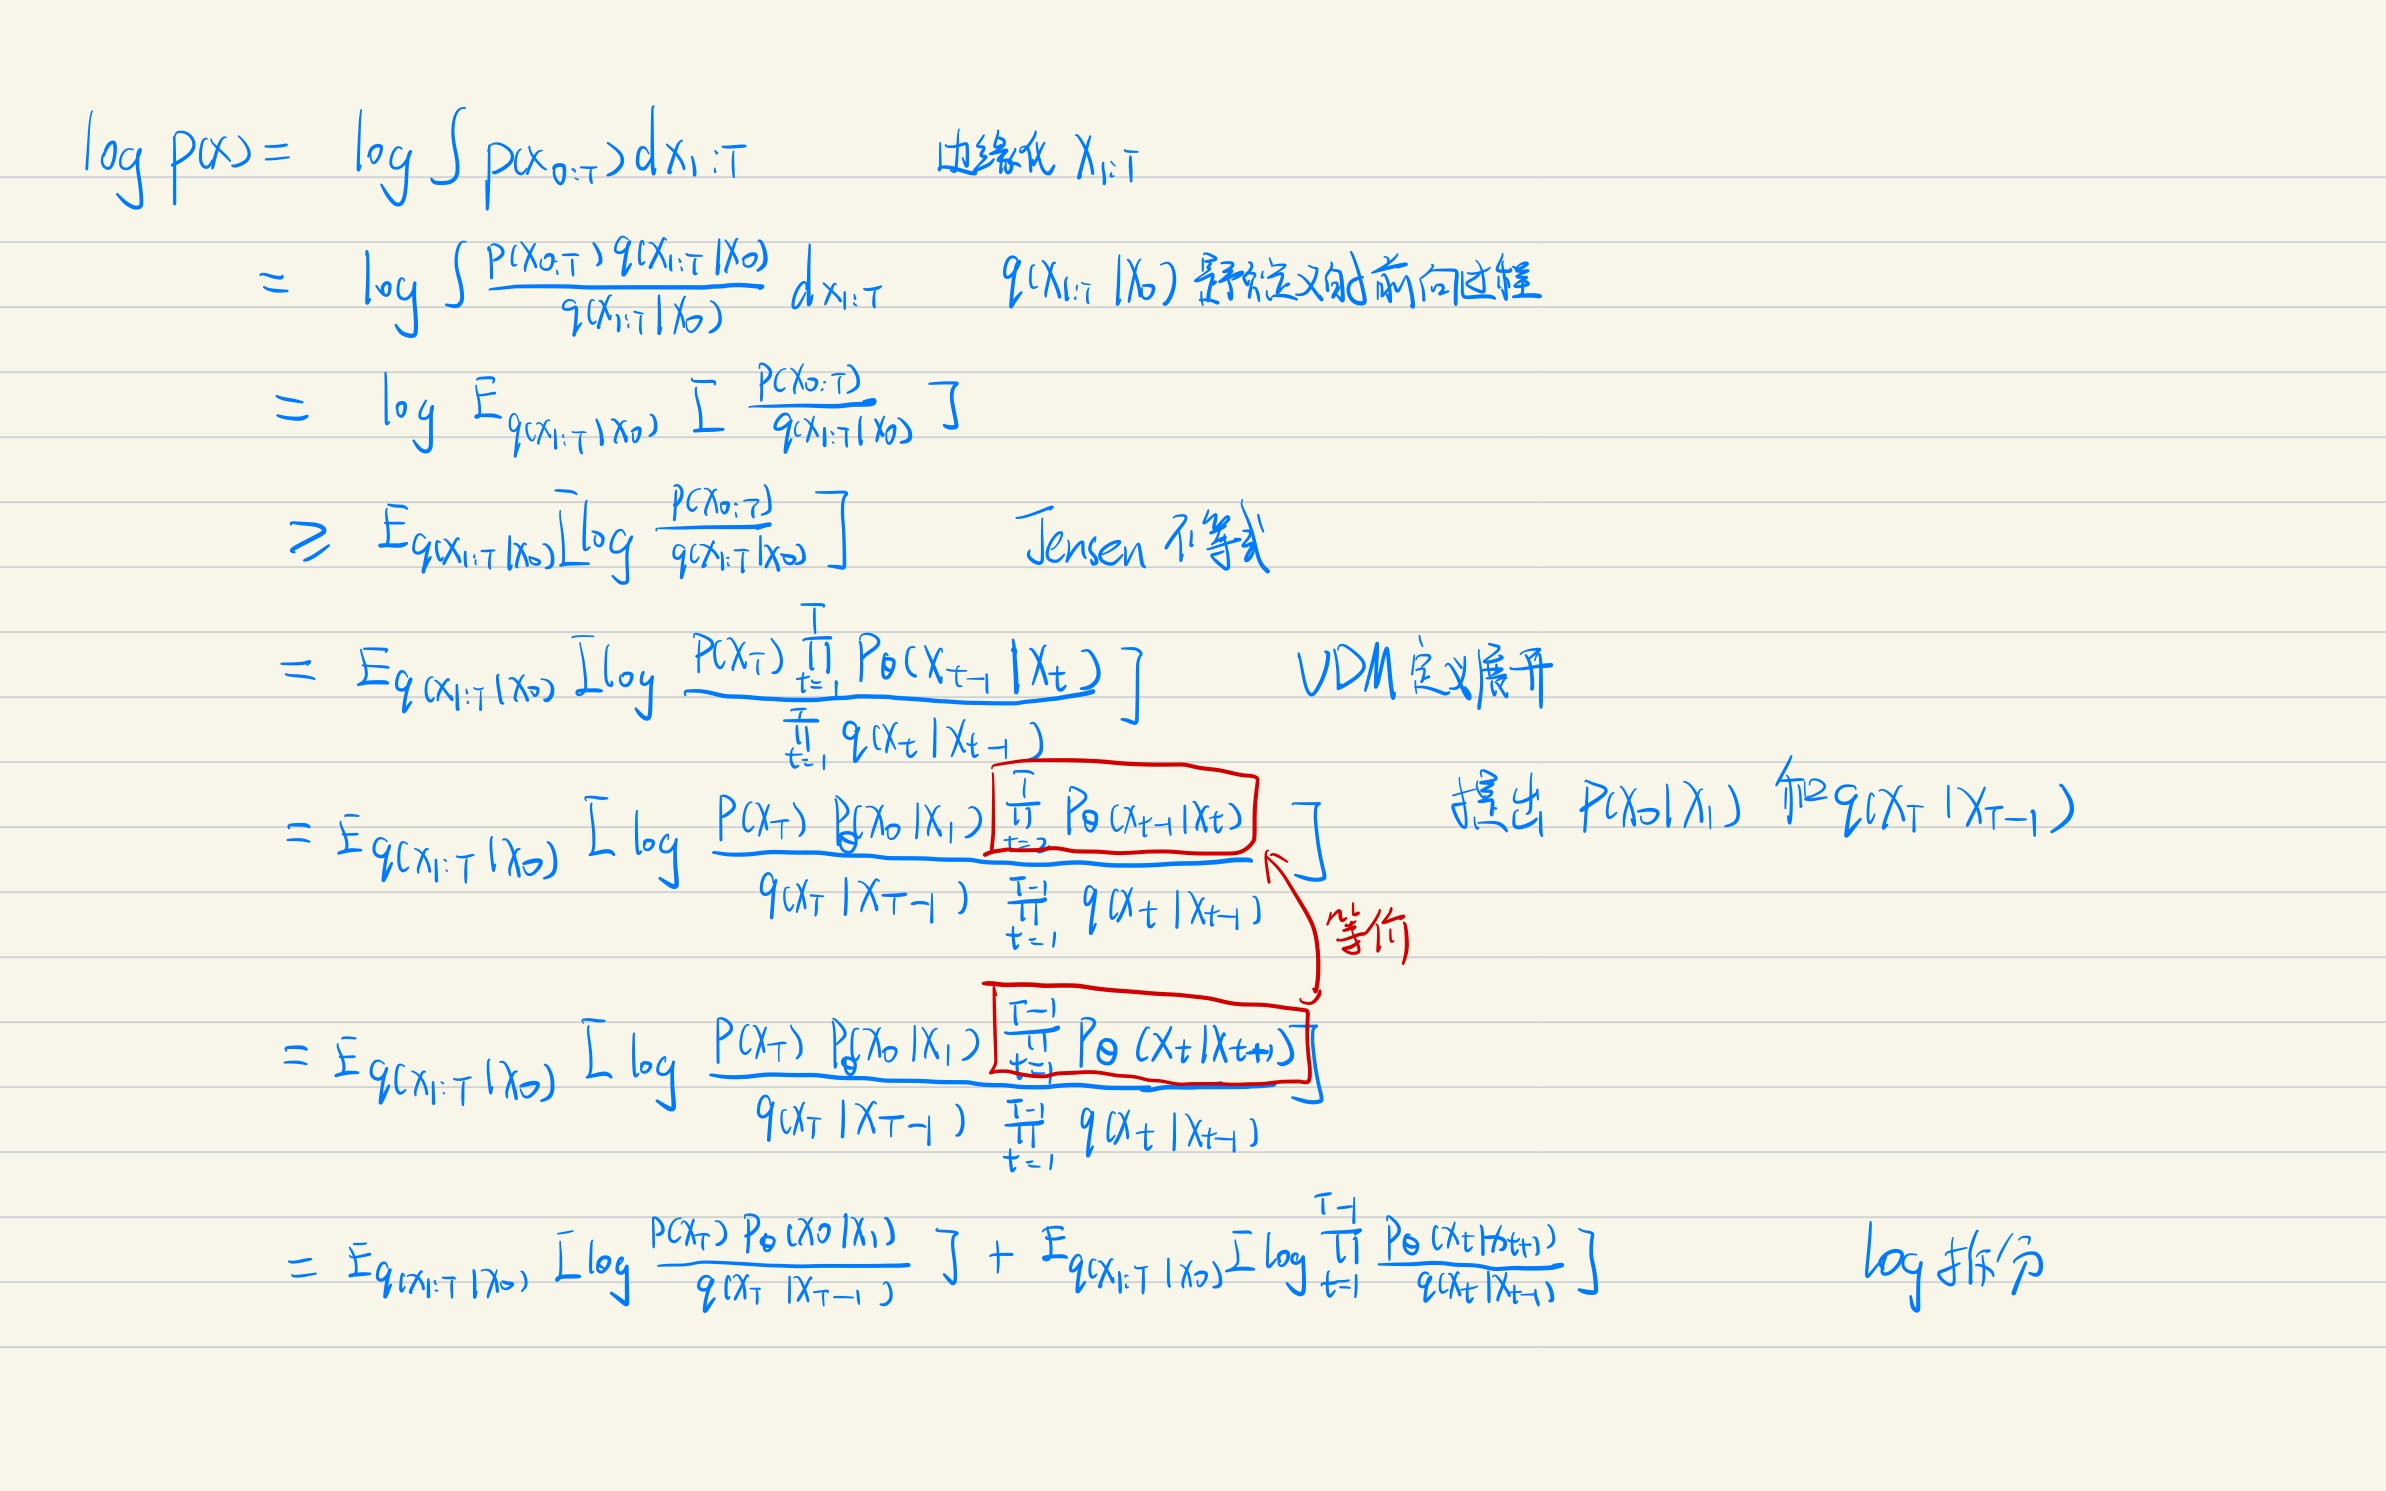 log p(x) = log ∫ p(x₀:T) dx₁:T 边缘化 x₁:T
= log ∫ p(x₀:T) q(x₁:T|x₀) / q(x₁:T|x₀) dx₁:T q(x₁:T|x₀) 是你定义的前向过程
= log E_q(x₁:T|x₀) [ p(x₀:T) / q(x₁:T|x₀) ]
≥ E_q(x₁:T|x₀) [ log p(x₀:T) / q(x₁:T|x₀) ] Jensen 不等式
= E_q(x₁:T|x₀) [ log p(x_T) ∏_{t=1}^{T} p_θ(x_{t-1}|x_t) / ∏_{t=1}^{T} q(x_t|x_{t-1}) ] VDM 定义展开
= E_q(x₁:T|x₀) [ log p(x_T) p_θ(x₀|x₁) ∏_{t=2}^{T} p_θ(x_{t-1}|x_t) / q(x_T|x_{T-1}) ∏_{t=1}^{T-1} q(x_t|x_{t-1}) ] 提出 p(x₀|x₁) 和 q(x_T|x_{T-1})
等价
= E_q(x₁:T|x₀) [ log p(x_T) p_θ(x₀|x₁) ∏_{t=1}^{T-1} p_θ(x_t|x_{t+1}) / q(x_T|x_{T-1}) ∏_{t=1}^{T-1} q(x_t|x_{t-1}) ]
= E_q(x₁:T|x₀) [ log p(x_T) p_θ(x₀|x₁) / q(x_T|x_{T-1}) ] + E_q(x₁:T|x₀) [ log ∏_{t=1}^{T-1} p_θ(x_t|x_{t+1}) / q(x_t|x_{t-1}) ] log 拆分